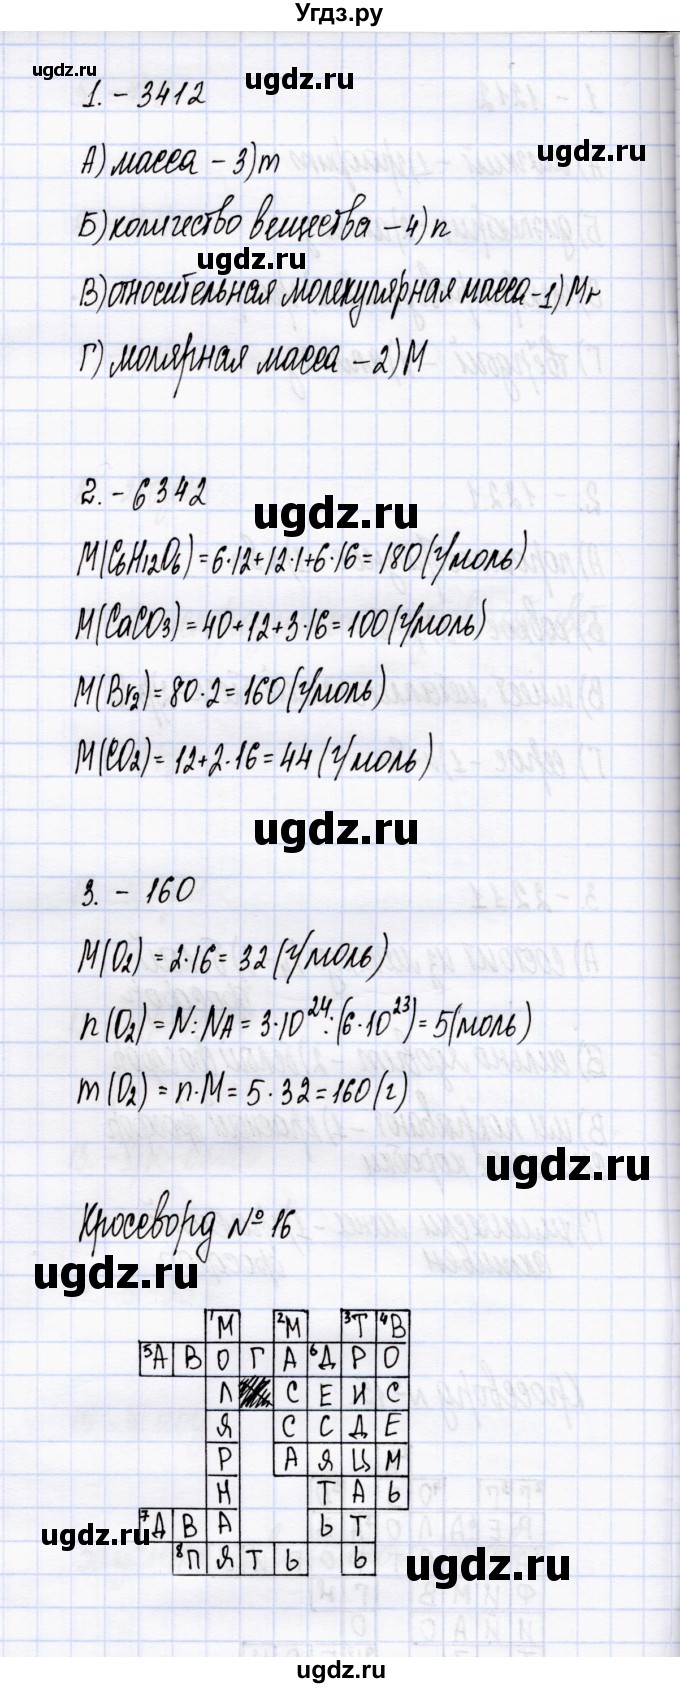 Угдз.ру
ugdz.ru
ugdz.ru
1. - 3412
ugdz.ru
А) масса - 3) m
Б) количество вещества - 4) n
ugdz.ru
В) относительная молекулярная масса - 1) Mr
Г) молярная масса - 2) М
2. - 6342
ugdz.ru
M(C6H12O6) = 6·12+12·1+6·16 = 180 (г/моль)
M(CaCO3) = 40+12+3·16 = 100 (г/моль)
M(Br2) = 80·2 = 160 (г/моль)
M(CO2) = 12+2·16 = 44 (г/моль)
ugdz.ru
3. - 160
M(O2) = 2·16 = 32 (г/моль)
n(O2) = N:NA = 3·10²⁴:(6·10²³) = 5 (моль)
m(O2) = n·M = 5·32 = 160 (г)
ugdz.ru
Кроссворд № 16
ugdz.ru
¹М ²М ³Т ⁴В
⁵А В О Г А ⁶Д Р О
Л С Е И С
Я С С Д Е
Р А Я Ц М
Н Т А Ь
⁷Д В А Ь Т
ugdz.ru
⁸П Я Т Ь Ь
ugdz.ru
ugdz.ru